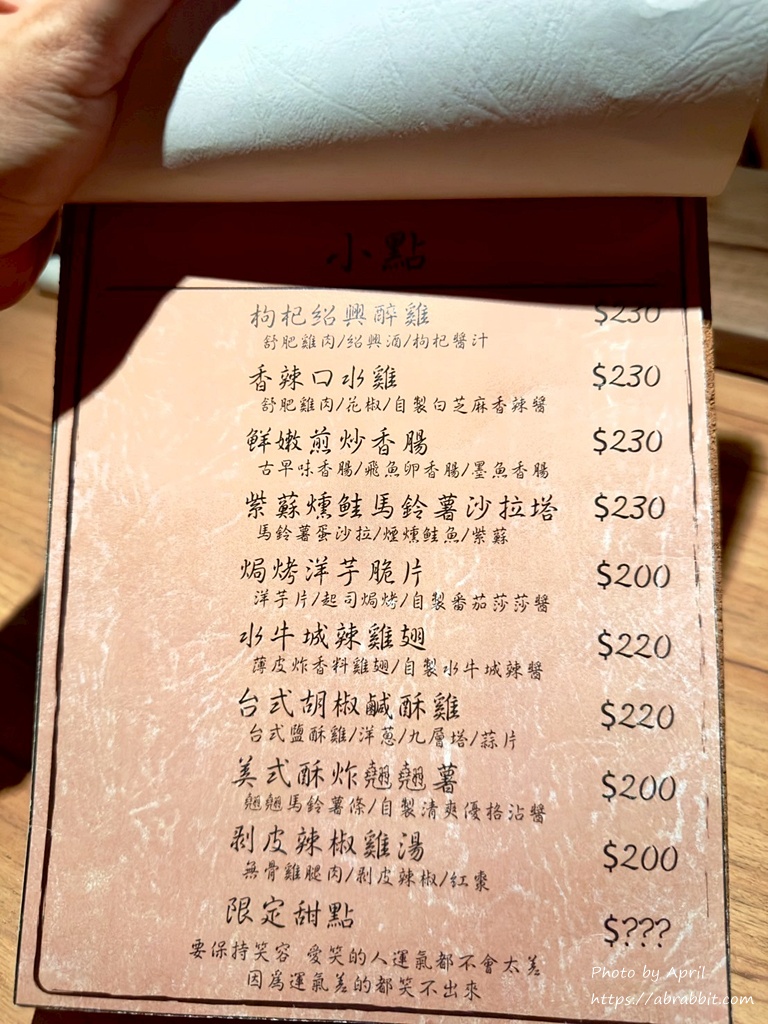 小點
枸杞紹興醉雞 $230
舒肥雞肉/紹興酒/枸杞醬汁
香辣口水雞 $230
舒肥雞肉/花椒/自製白芝麻香辣醬
鮮嫩煎炒香腸 $230
古早味香腸/飛魚卵香腸/墨魚香腸
紫蘇燻鮭馬鈴薯沙拉塔 $230
馬鈴薯蛋沙拉/煙燻鮭魚/紫蘇
焗烤洋芋脆片 $200
洋芋片/起司焗烤/自製番茄莎莎醬
水牛城辣雞翅 $220
薄皮炸香料雞翅/自製水牛城辣醬
台式胡椒鹹酥雞 $220
台式鹽酥雞/洋蔥/九層塔/蒜片
美式酥炸翹翹薯 $200
翹翹馬鈴薯條/自製清爽優格沾醬
剥皮辣椒雞湯 $200
無骨雞腿肉/剥皮辣椒/紅棗
限定甜點 $???
要保持笑容 愛笑的人運氣都不會太差
因為運氣差的都笑不出來
Photo by April
https://abrabbit.com